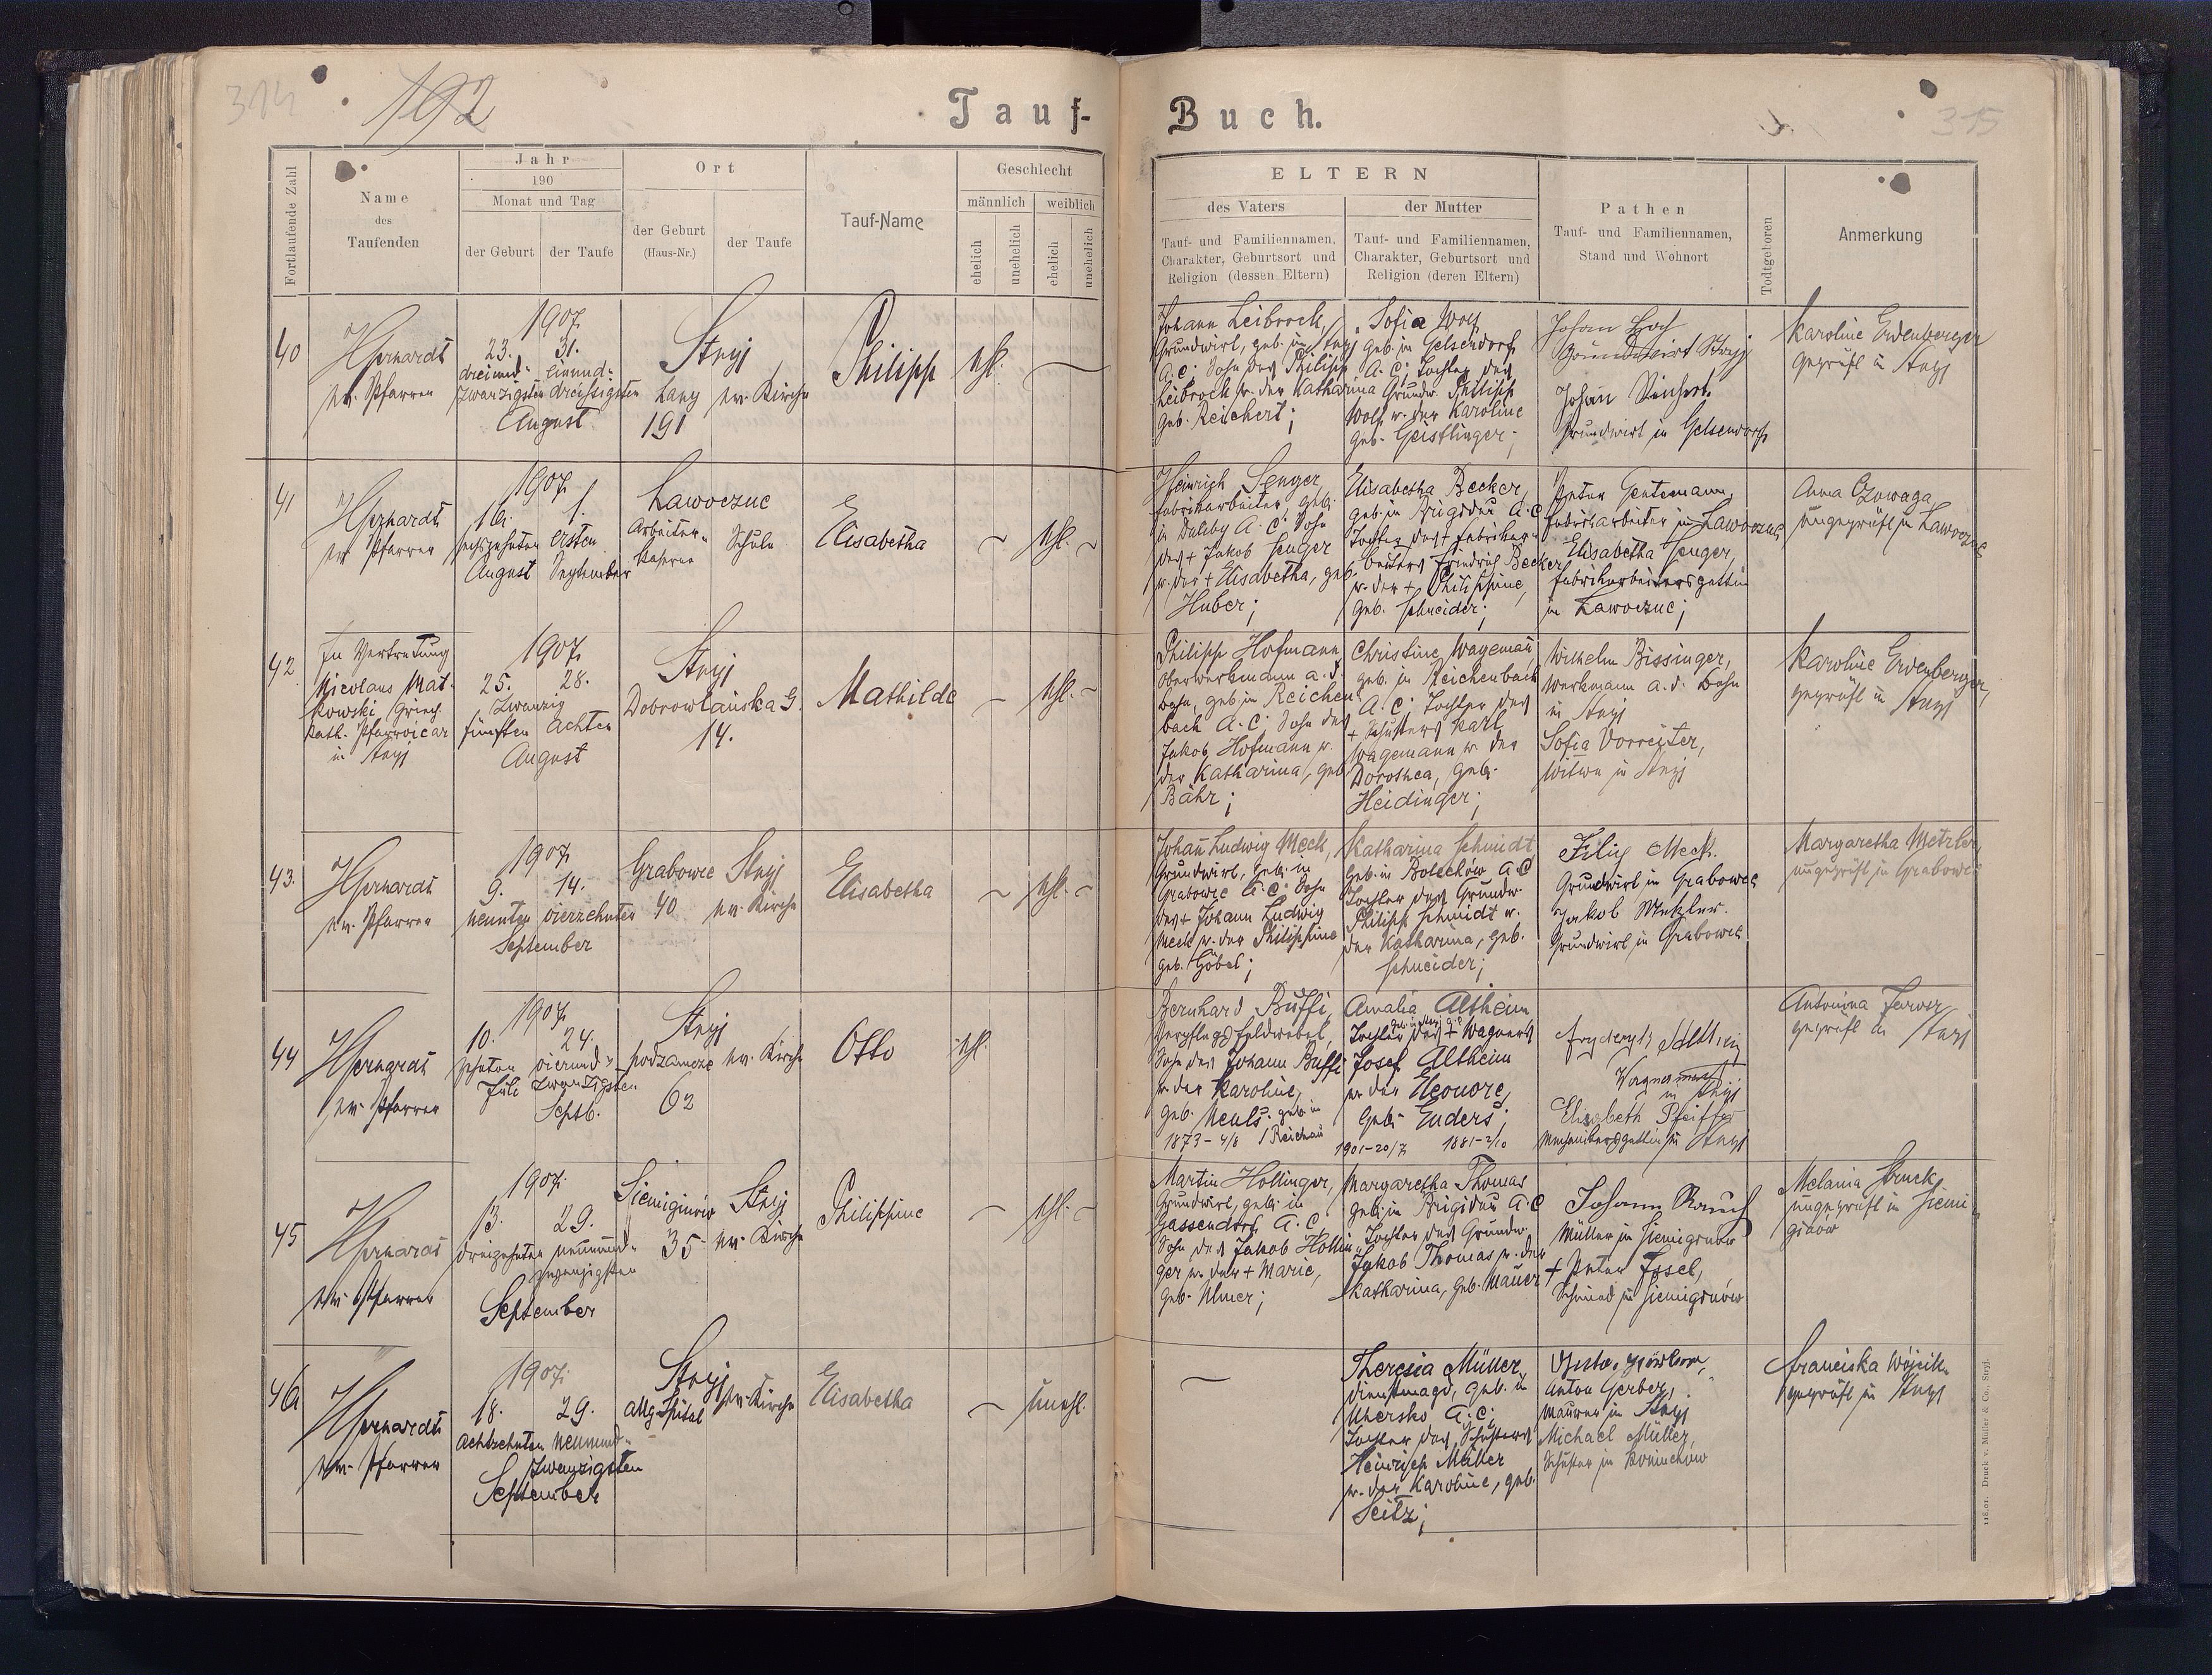 314
192
Tauf-
Buch.
315
Fortlaufende Zahl
Name
des
Taufenden
Jahr
190
Monat und Tag
der Geburt
der Taufe
Ort
der Geburt
(Haus-Nr.)
der Taufe
Tauf-Name
Geschlecht
männlich
weiblich
ehelich
unehelich
ehelich
unehelich
ELTERN
des Vaters
Tauf- und Familiennamen,
Charakter, Geburtsort und
Religion (dessen Eltern)
der Mutter
Tauf- und Familiennamen,
Charakter, Geburtsort und
Religion (deren Eltern)
Pathen
Tauf- und Familiennamen,
Stand und Wohnort
Todtgeboren
Anmerkung
40
ev. Pfarrer
1907
23. 31.
dreiund- einund-
zwanzigsten dreissigsten
August
Stryj
Lany ev. Kirche
191
Philipp
ehl.
Johann Leibrock,
Grundwirt, geb. in Stryj
A. C. Sohn des Philipp
Leibrock u. der Katharina
geb. Reichert;
Sofia Wolf
geb. in Gelsendorf
A. C., Tochter des
Grundw. Philipp
Wolf u. der Karoline
geb. Geistlinger;
Johann
Grundwirt Stryj
Johann Reichert
Grundwirt in Gelsendorf
Karoline Erdenberger
geprüft in Stryj
41
ev. Pfarrer
1907
16. 1.
sechszehnten ersten
August September
Lawoczne
Arbeiter- Schule
Kaserne
Elisabetha
ehl.
Heinrich Senger,
Fabriksarbeiter, geb.
in Dalby A. C. Sohn
des + Jakob Senger
u. der + Elisabetha, geb.
Huber;
Elisabetha Becker,
geb. in Brigidau A. C.
Tochter des + Fabriksar-
beiters Friedrich Becker
u. der + Philippine,
geb. Schneider;
Peter Gentemann,
Fabriksarbeiter in Lawoczne
Elisabetha Senger,
Fabriksarbeitersgattin
in Lawoczne;
Anna Czowaga,
ungeprüft in Lawoczne
42
In Vertretung
Nicolaus Mat-
kowski griech.
kath. Pfarrvicar
in Stryj
1907
25. 28.
zwanzig
fünften achten
August
Stryj
Dobrowlańska G.
14.
Mathilde
ehl.
Philipp Hofmann
Oberwerkmann a. d.
Bahn, geb. in Reichen-
bach A. C. Sohn des
Jakob Hofmann u.
der Katharina, geb.
Bähr;
Christine Wagemañ,
geb. in Reichenbach
A. C., Tochter des
+ Schusters Karl
Wagemann u. der
Dorothea, geb.
Heidinger;
Wilhelm Bissinger,
Werkmann a. d. Bahn
in Stryj
Sofia Vorreiter,
Witwe in Stryj
Karoline Erdenberger,
geprüft in Stryj
43.
ev. Pfarrer
1907
9. 14.
neunten vierzehnten
September
Grabowce Stryj
40 ev. Kirche
Elisabetha
ehl.
Johañ Ludwig Meck,
Grundwirt, geb. in
Grabowce A. C. Sohn
des + Johann Ludwig
Meck u. der Philippine
geb. Göbel;
Katharina Schmidt
geb. in Bolechów A. C
Tochter des Grundw.
Philipp Schmidt u.
der Katharina, geb.
Schneider;
Filip Meck.
Grundwirt in Grabowce
Jakob Metzler.
Grundwirt in Grabowce
Margaretha Metzler,
ungeprüft in Grabowce
44
ev. Pfarrer
1907
10. 24.
zehnten vierund-
Juli zwanzigsten
Septb.
Stryj
podzamcze ev. Kirche
62
Otto
ehl.
Bernhard Buffi,
Verpflegsfeldwebel,
Sohn des Johann Buffi
u. der Karoline,
geb. geb. in
1873-4/8 Reichau
Amalia Altheim
Tochter des + Wagners
Josef Altheim
u. der Eleonore,
geb. Enders;
1901-20/7 1881-2/10
in Stryj
Elisabeth Pfeiffer
in Stryj
Antonina
geprüft in Stryj
45
ev. Pfarrer
1907.
13. 29.
dreizehnten neunund-
zwanzigsten
September
Siemiginów Stryj
35 ev. Kirche
Philippine
ehl.
Martin Hollinger,
Grundwirt, geb. in
Gassendorf A. C,
Sohn des Jakob Hollin-
ger u. der + Marie,
geb. Ulmer;
Margaretha Thomas
geb. in Brigidau A. C
Tochter des Grundw.
Jakob Thomas u. der
Katharina, geb. Mauer
Johann Rauch
Müller in Siemiginów
+ Peter Issel,
Schmied in Siemiginów
Melania Struck
ungeprüft in Siemi-
ginów
46
ev. Pfarrer
1907.
18. 29.
achtzehnten neunund-
zwanzigsten
September
Stryj ev. Kirche
allg. Spital
Elisabetha
unehl.
Theresia Müller,
Dienstmagd, geb. in
Uhersko A. C;
Tochter des Schusters
Heinrich Müller
u. der Karoline, geb.
Seitz;
Anton Gerber,
Maurer in Stryj
Michael Müller,
Schuster in Koniuchów
Franciska Wójcik
geprüft in Stryj
118.01. Druck v. Müller & Co., Stryj.